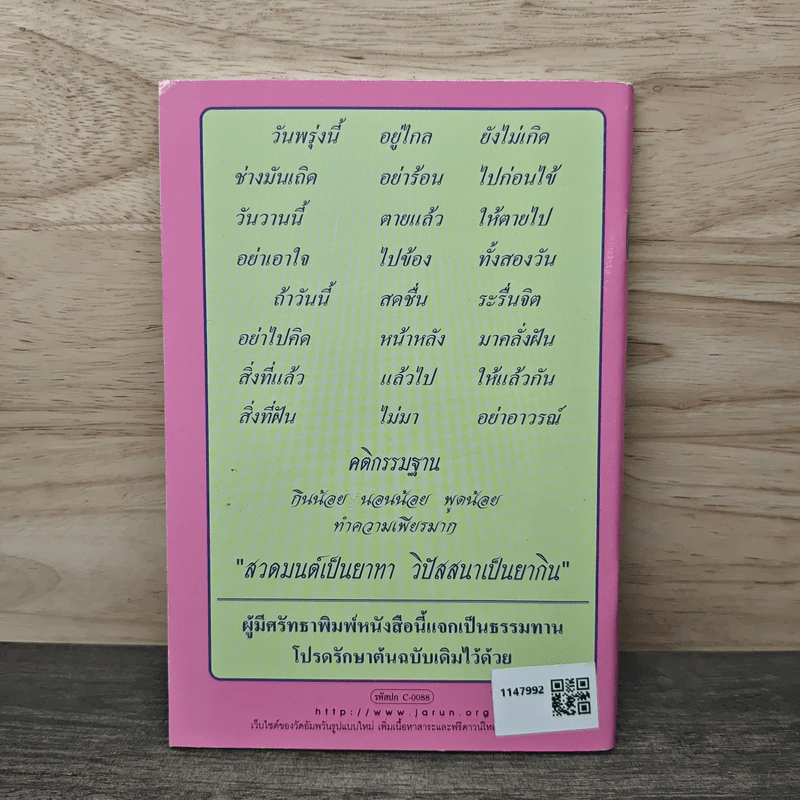 วันพรุ่งนี้ อยู่ไกล ยังไม่เกิด
ช่างมันเถิด อย่าร้อน ไปก่อนไข้
วันวานนี้ ตายแล้ว ให้ตายไป
อย่าเอาใจ ไปข้อง ทั้งสองวัน
ถ้าวันนี้ สดชื่น ระรื่นจิต
อย่าไปคิด หน้าหลัง มาคลั่งฝัน
สิ่งที่แล้ว แล้วไป ให้แล้วกัน
สิ่งที่ฝัน ไม่มา อย่าอาวรณ์
คติกรรมฐาน
กินน้อย นอนน้อย พูดน้อย
ทำความเพียรมาก
"สวดมนต์เป็นยาทา วิปัสสนาเป็นยากิน"
ผู้มีศรัทธาพิมพ์หนังสือนี้แจกเป็นธรรมทาน
โปรดรักษาต้นฉบับเดิมไว้ด้วย
1147992
รหัสปก C-0088
http://www.jarun.org
เว็บไซต์ของวัดอัมพวันรูปแบบใหม่ เพิ่มเนื้อหาสาระและฟรีดาวน์โหลด